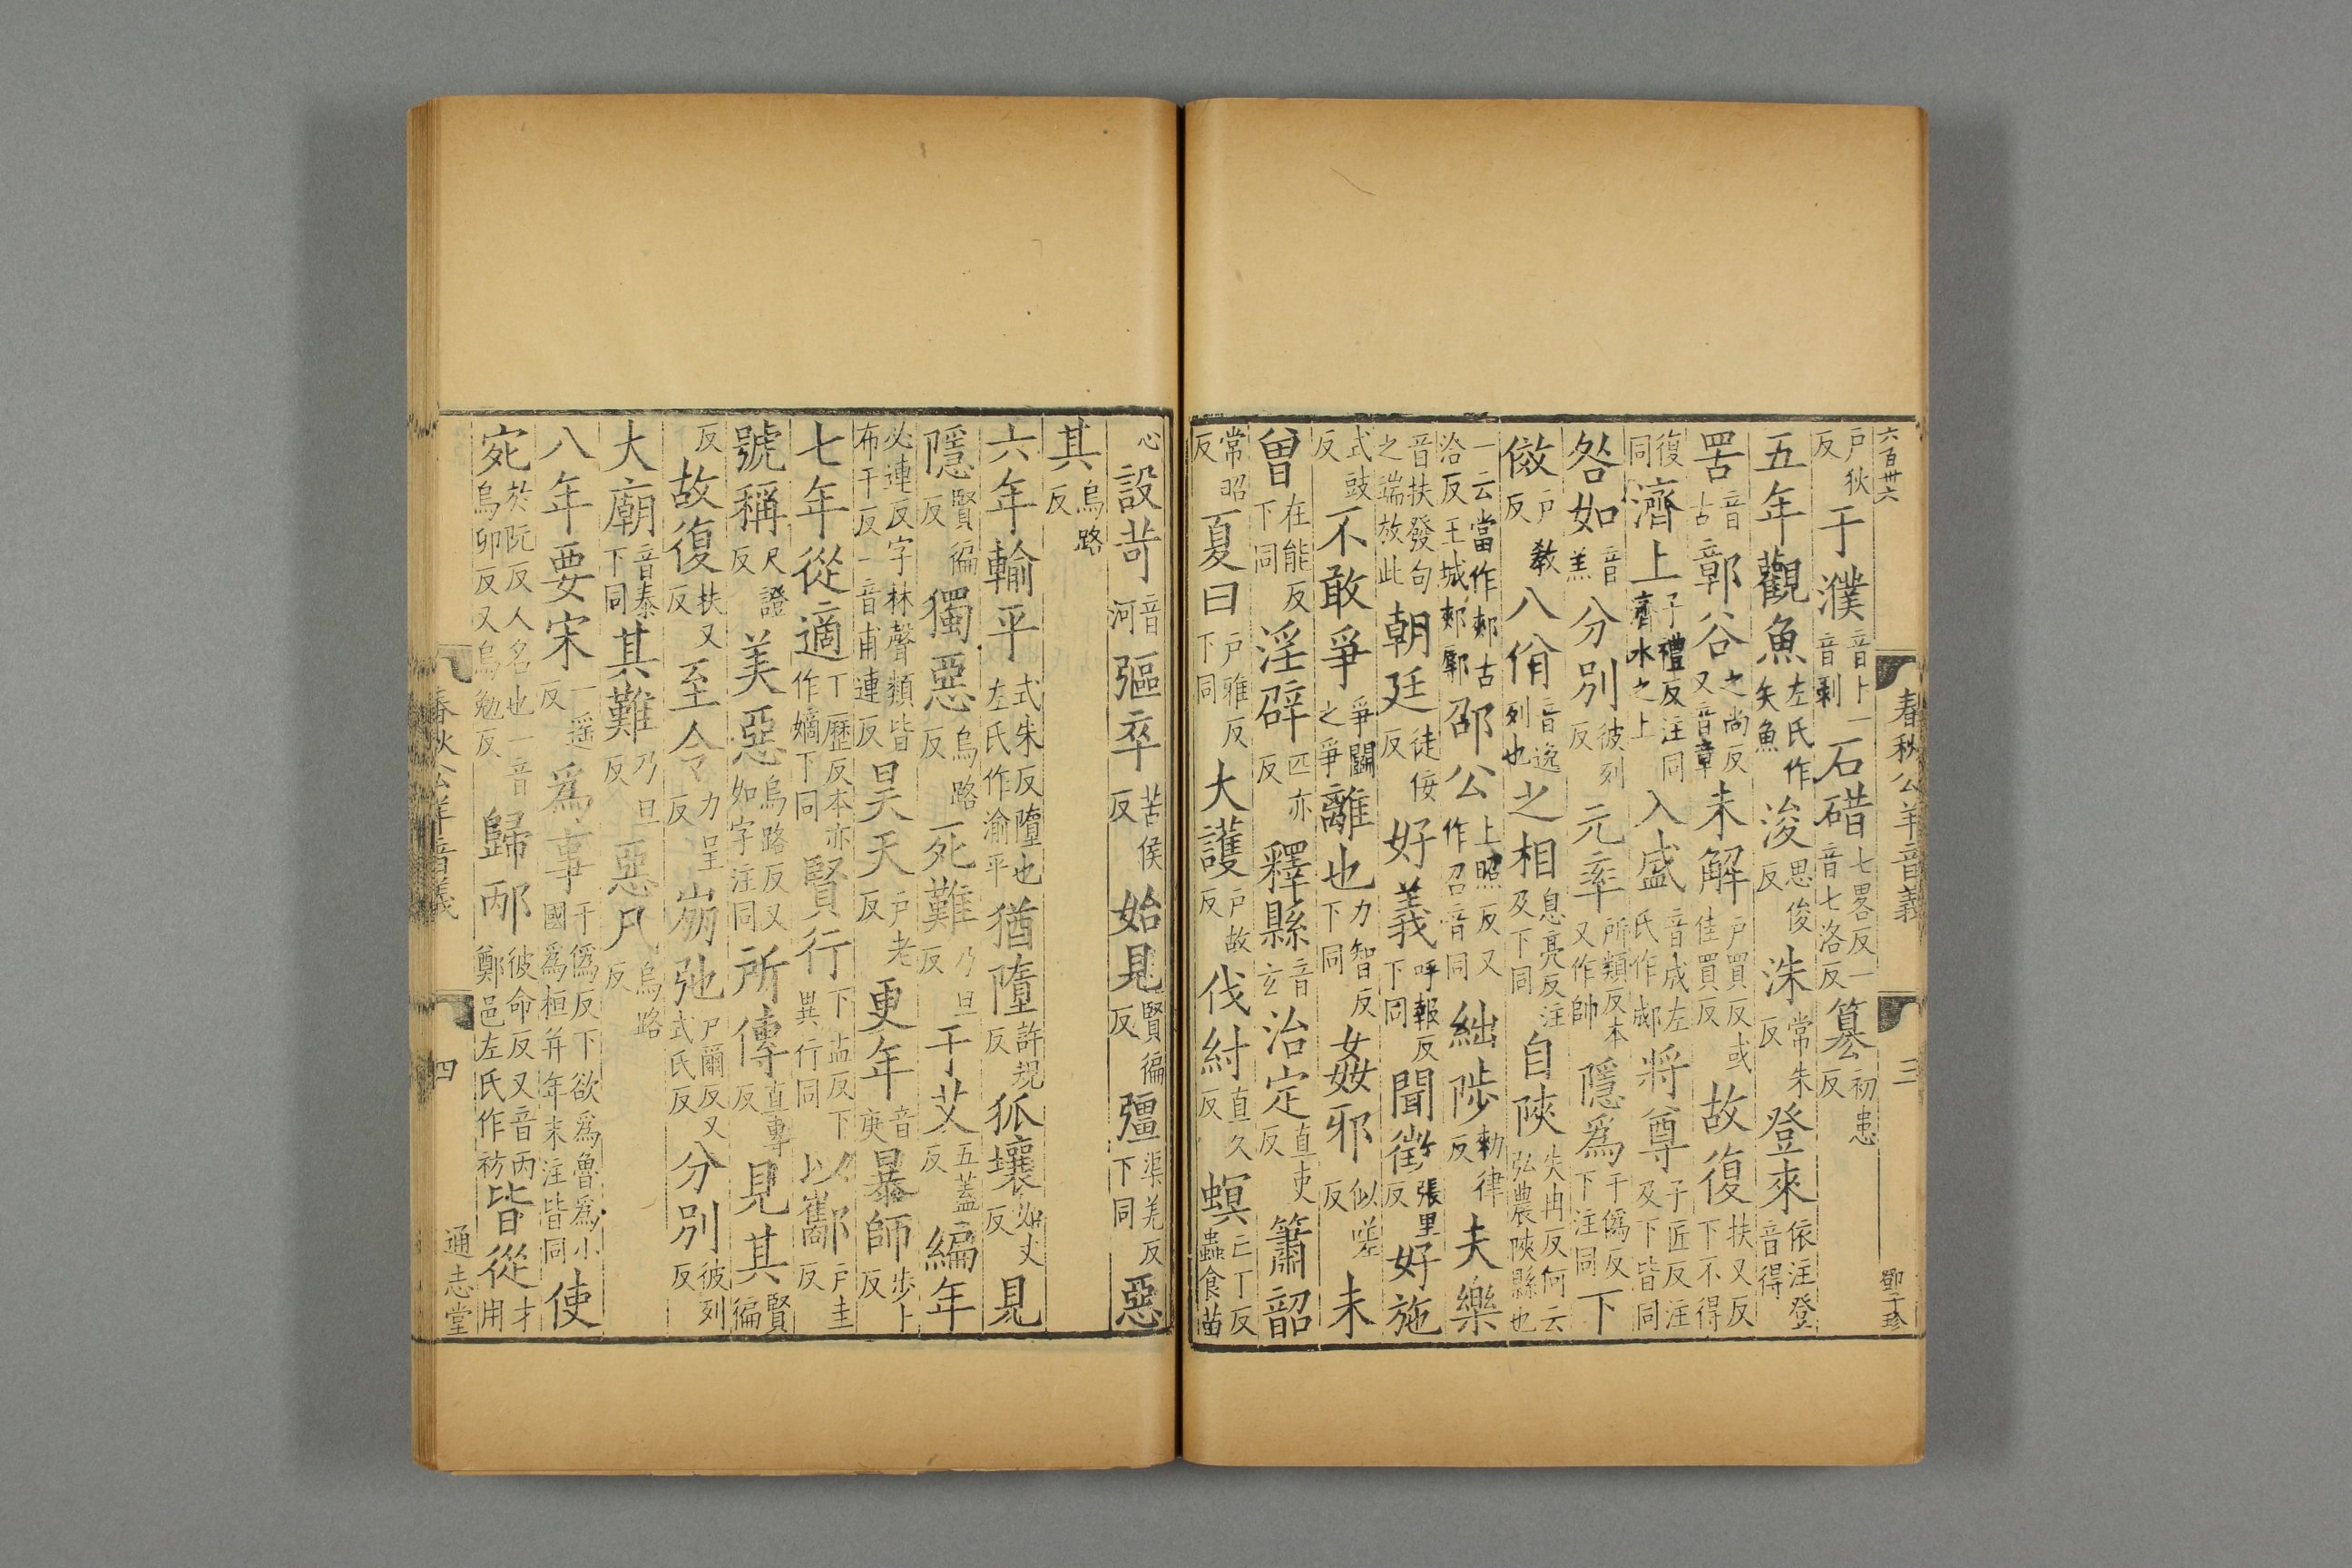 六百卅六
春秋公羊音義
三
鄧子珍
戶狄反于濮音卜一音剥石碏七畧反一音七洛反篡初患反
五年觀魚左氏作矢魚浚思俊反洙常朱反登來依注登音得
罟音古鄣谷之尚反又音章未解戶買反或佳買反故復扶又反下不得
復同濟上子禮反注同齊水之上入盛音成左氏作郕將尊子匠反注及下皆同
咎如音羔分別彼列反元率所類反本又作帥隱爲于僞反下下注同
傚戶教反八佾音逸列也之相息亮反注及下同自陝失冉反何云弘農陝縣也
一云當作郟古洽反王城郟鄏邵公上照反又作召音同絀陟勑律反夫樂
音扶發句之端放此朝廷徒佞反好義呼報反下同聞徵張里反好施
式豉反不敢爭爭鬬之爭離也力智反下同姦邪似嗟反未
曾在能反下同淫辟匹亦反釋縣音玄治定直吏反簫韶
常昭反夏曰戶雅反下同大護戶故反伐紂直久反螟亡丁反蟲食苗
心設苛音河彄卒苦侯反始見賢徧反彊渠羌反下同惡
其烏路反
六年輸平式朱反墮也左氏作渝平猶墮許規反狐壤如丈反見
隱賢徧反獨惡烏路反死難乃旦反于艾五蓋反編年
必連反字林聲類皆布千反一音甫連反昊天戶老反更年音庚暴師步卜反
七年從適丁歷反本亦作嫡下同賢行下孟反下異行同以酅戶圭反
號稱尺證反美惡烏路反又如字注同所傳直專反見其賢徧
反故復扶又反至令力呈反崩弛尸爾反又式氏反分別彼列反
大廟音泰下同其難乃旦反惡凡烏路反
八年要宋一遥反爲事于僞反下欲爲魯爲小國爲桓并年末注皆同使
宛於阮反人名也一音烏卯反又烏勉反歸邴彼命反又音丙鄭邑左氏作祊皆從才用
春秋公羊音義
四
通志堂